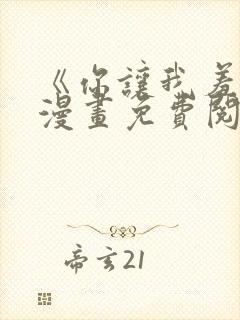 《你讓我羞
漫畫免費閱
帝玄21